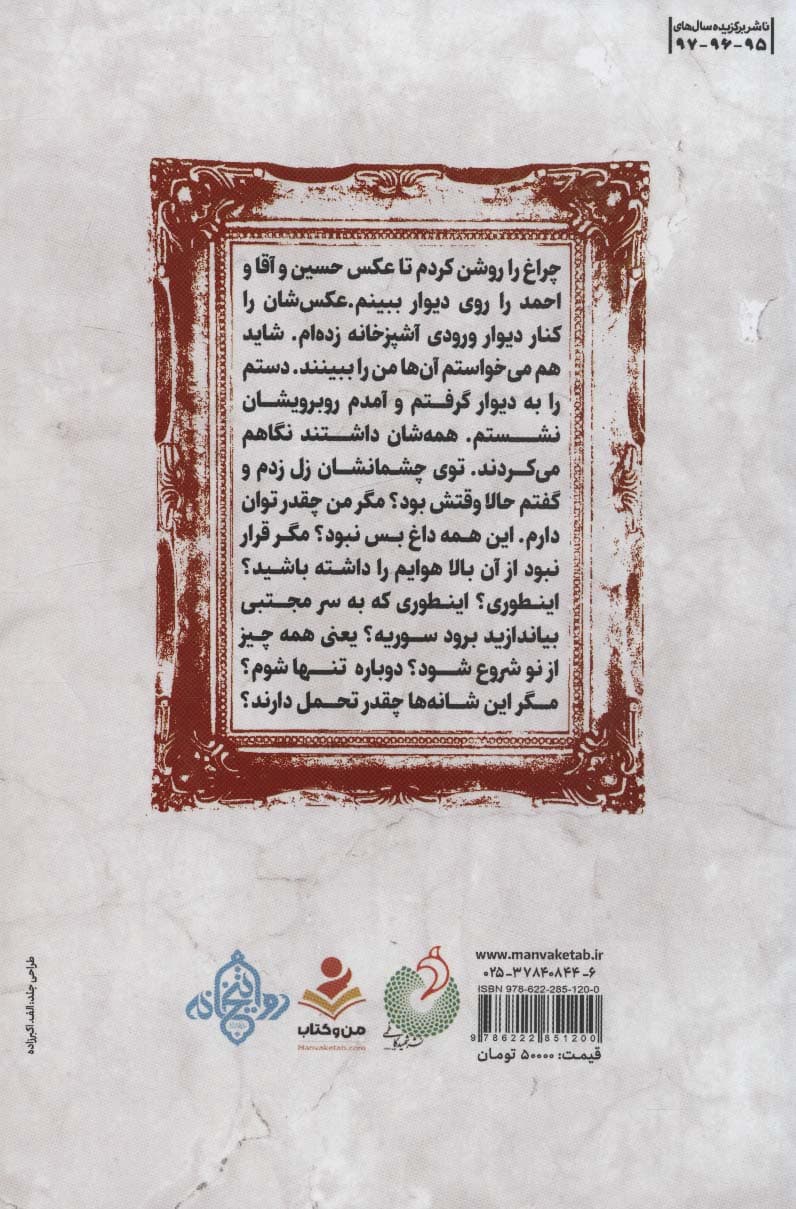 ناشر برگزیده سال‌های
۹۵-۹۶-۹۷
چراغ را روشن کردم تا عکس حسین و آقا و
احمد را روی دیوار ببینم.عکس‌شان را
کنار دیوار ورودی آشپزخانه زده‌ام. شاید
هم می‌خواستم آن‌ها من را ببینند. دستم
را به دیوار گرفتم و آمدم روبرویشان
نشستم. همه‌شان داشتند نگاهم
می‌کردند. توی چشمانشان زل زدم و
گفتم حالا وقتش بود؟ مگر من چقدر توان
دارم. این همه داغ بس نبود؟ مگر قرار
نبود از آن بالا هوایم را داشته باشید؟
اینطوری؟ اینطوری که به سر مجتبی
بیاندازید برود سوریه؟ یعنی همه چیز
از نو شروع شود؟ دوباره تنها شوم؟
مگر این شانه‌ها چقدر تحمل دارند؟
www.manvaketab.ir
۰۲۵-۳۷۸۴۰۸۴۴-۶
ISBN 978-622-285-120-0
9 786222 851200
قیمت: ۵۰۰۰۰ تومان
من و کتاب
Manvaketab.com
طراحی جلد: الف. اکبرزاده